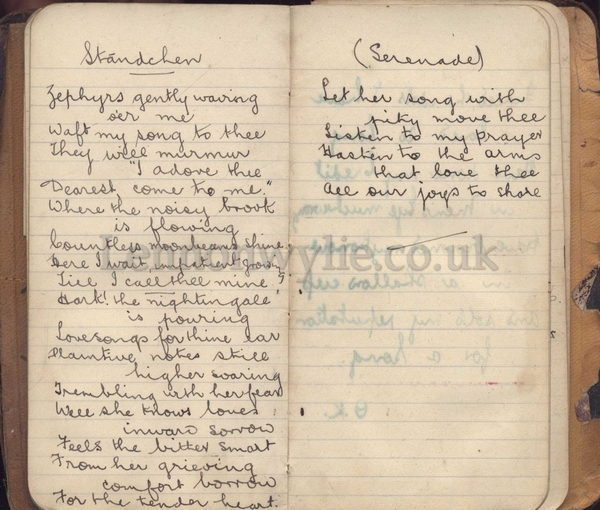 Ständchen
Zephyrs gently waving
o'er me
Waft my song to thee
They will murmur
"I adore thee
Dearest come to me."
Where the noisy brook
is flowing
Countless moonbeams shine
Here I wait, impatient growing
Till I call thee mine
Hark! the nightingale
is pouring
Love songs for thine ear
Plaintive notes still
higher soaring
Trembling with her fear
Well she knows loves
inward sorrow
Feels the bitter smart
From her grieving
comfort borrow
For the tender heart.
(Serenade)
Let her song with
pity move thee
Listen to my prayer
Hasten to the arms
that love thee
All our joys to share
Lennonwylie.co.uk